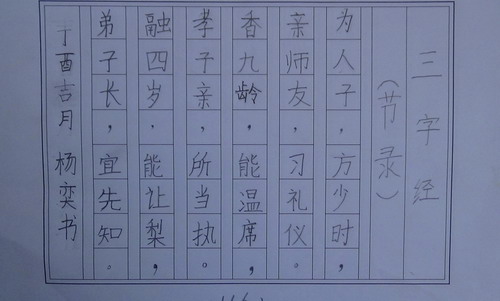 三字经
（节录）
为人子，方少时，
亲师友，习礼仪。
香九龄，能温席，
孝于亲，所当执。
融四岁，能让梨，
弟子长，宜先知。
丁酉吉月 杨奕书